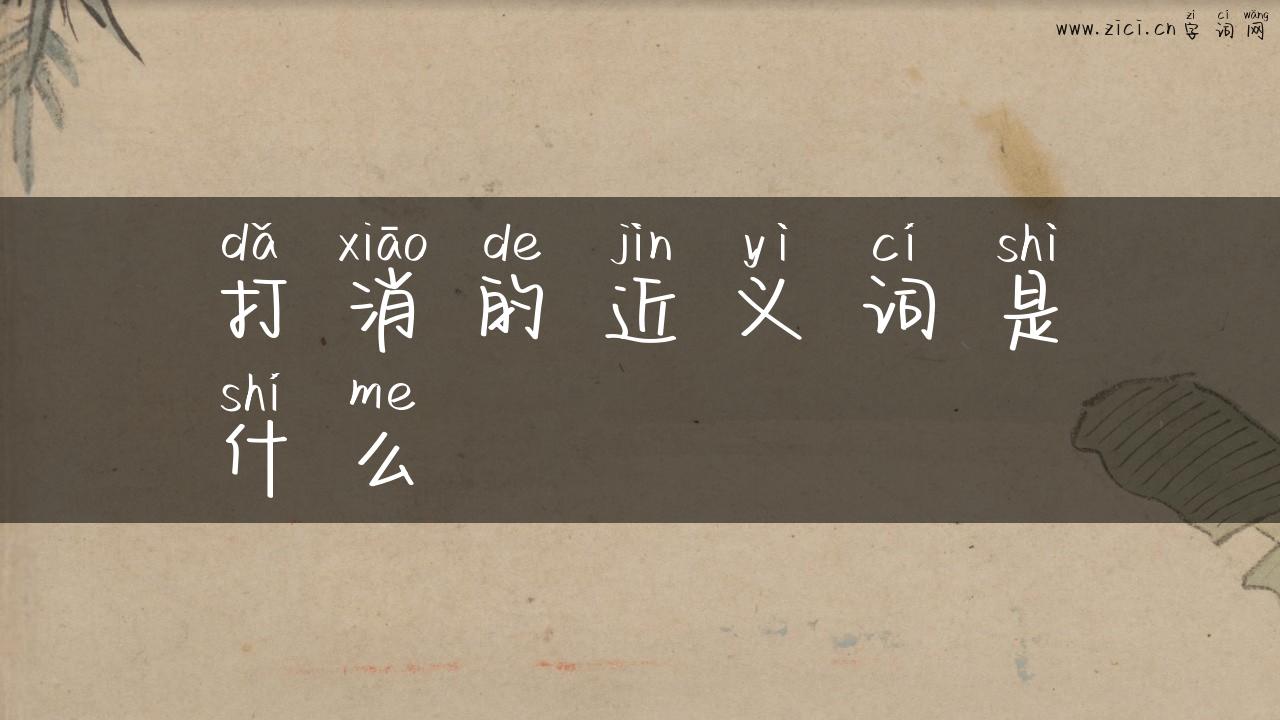 zì cí wǎng
www.zici.cn 字 词 网
dǎ xiāo de jìn yì cí shì
打 消 的 近 义 词 是
shí me
什 么